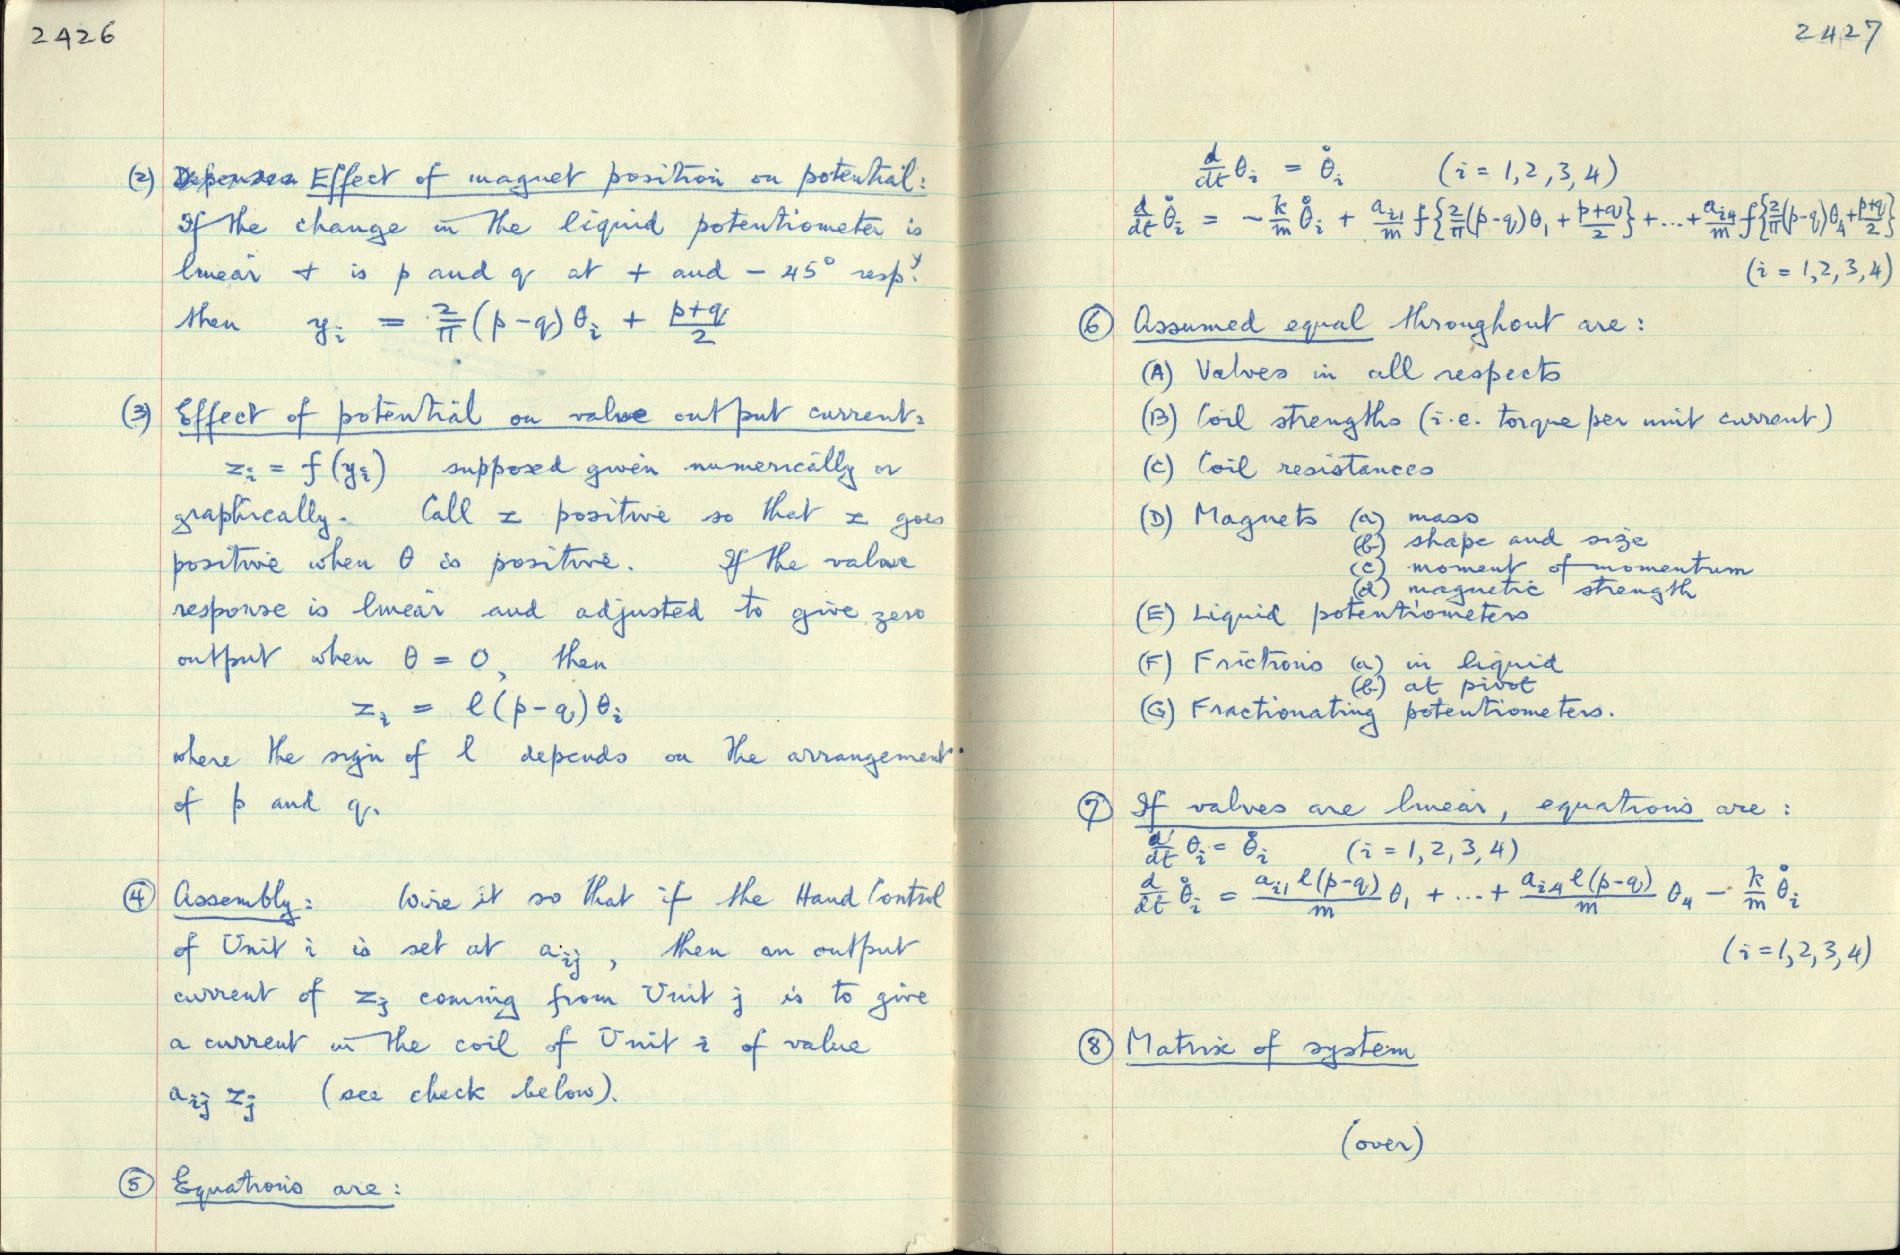 2426
(2) Effect of magnet position on potential:
If the change in the liquid potentiometer is
linear + is p and q at + and - 45° respy.
then yᵢ = 2/π (p-q) θᵢ + (p+q)/2
(3) Effect of potential on valve output current:
zᵢ = f(yᵢ) supposed given numerically or
graphically. Call z positive so that z goes
positive when θ is positive. If the valve
response is linear and adjusted to give zero
output when θ = 0, then
zᵢ = l(p-q)θᵢ
where the sign of l depends on the arrangement
of p and q.
④ Assembly: Wire it so that if the Hand Control
of Unit i is set at aᵢⱼ, then an output
current of zⱼ coming from Unit j is to give
a current in the coil of Unit i of value
aᵢⱼ zⱼ (see check below).
⑤ Equations are:
2427
d/dt θᵢ = θ̊ᵢ (i = 1,2,3,4)
d/dt θ̊ᵢ = - k/m θ̊ᵢ + aᵢ₁/m f{2/π(p-q)θ₁ + (p+q)/2} + ... + aᵢ₄/m f{2/π(p-q)θ₄ + (p+q)/2}
(i = 1,2,3,4)
⑥ Assumed equal throughout are:
(A) Valves in all respects
(B) Coil strengths (i.e. torque per unit current)
(C) Coil resistances
(D) Magnets (a) mass
(b) shape and size
(c) moment of momentum
(d) magnetic strength
(E) Liquid potentiometers
(F) Frictions (a) in liquid
(b) at pivot
(G) Fractionating potentiometers.
⑦ If valves are linear, equations are:
d/dt θᵢ = θ̊ᵢ (i = 1,2,3,4)
d/dt θ̊ᵢ = aᵢ₁ l(p-q)/m θ₁ + ... + aᵢ₄ l(p-q)/m θ₄ - k/m θ̊ᵢ
(i = 1,2,3,4)
⑧ Matrix of system
(over)